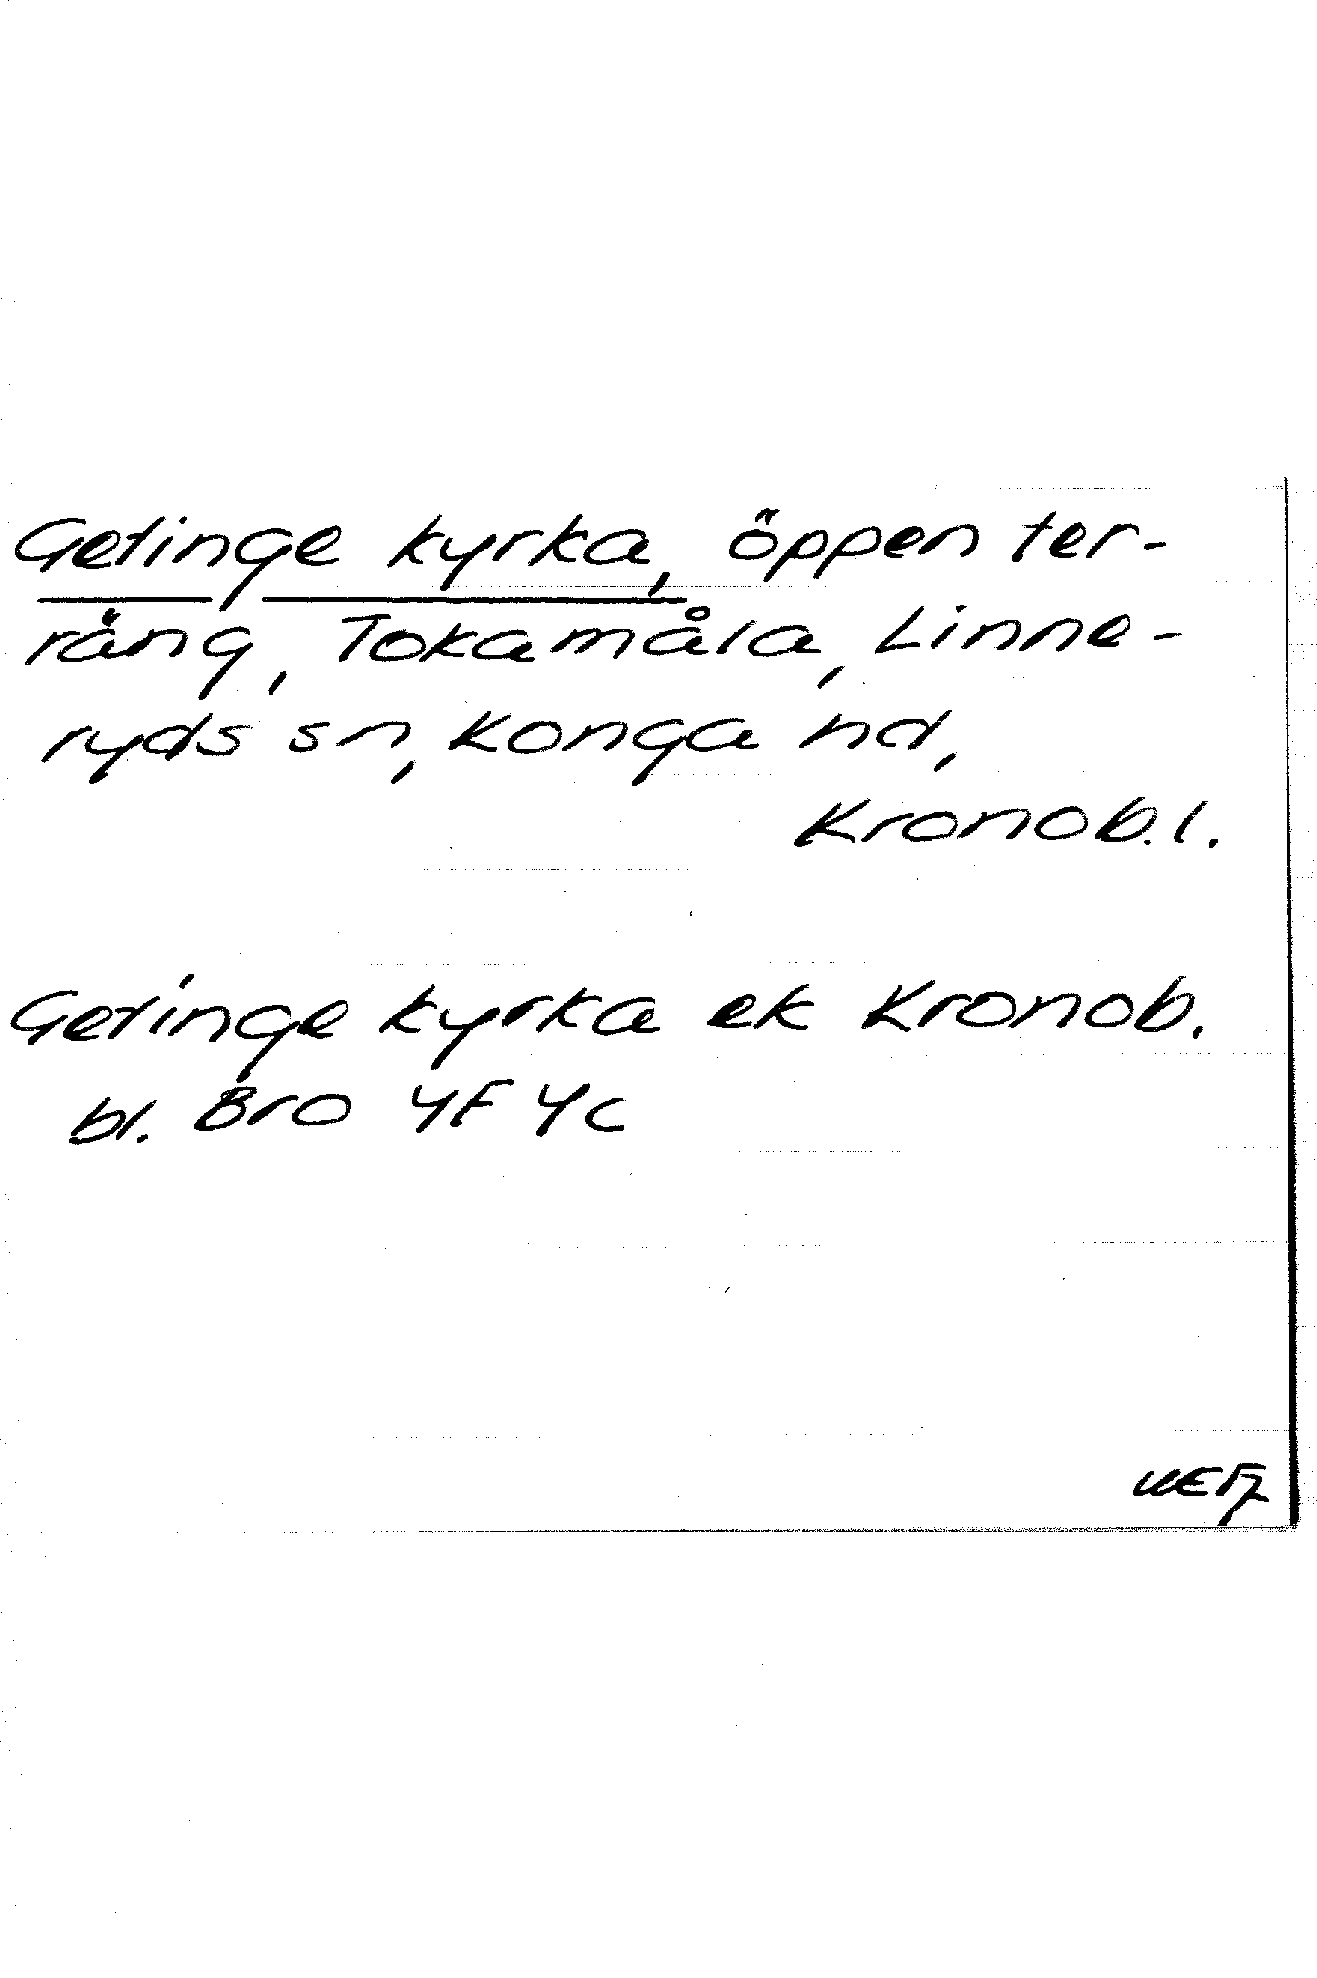 Getinge kyrka, öppen ter-
räng, Tokamåla, Linne-
ryds sn, Konga hd,
Kronob. l.
Getinge kyrka ek Kronob.
bl. Bro 4F 4c